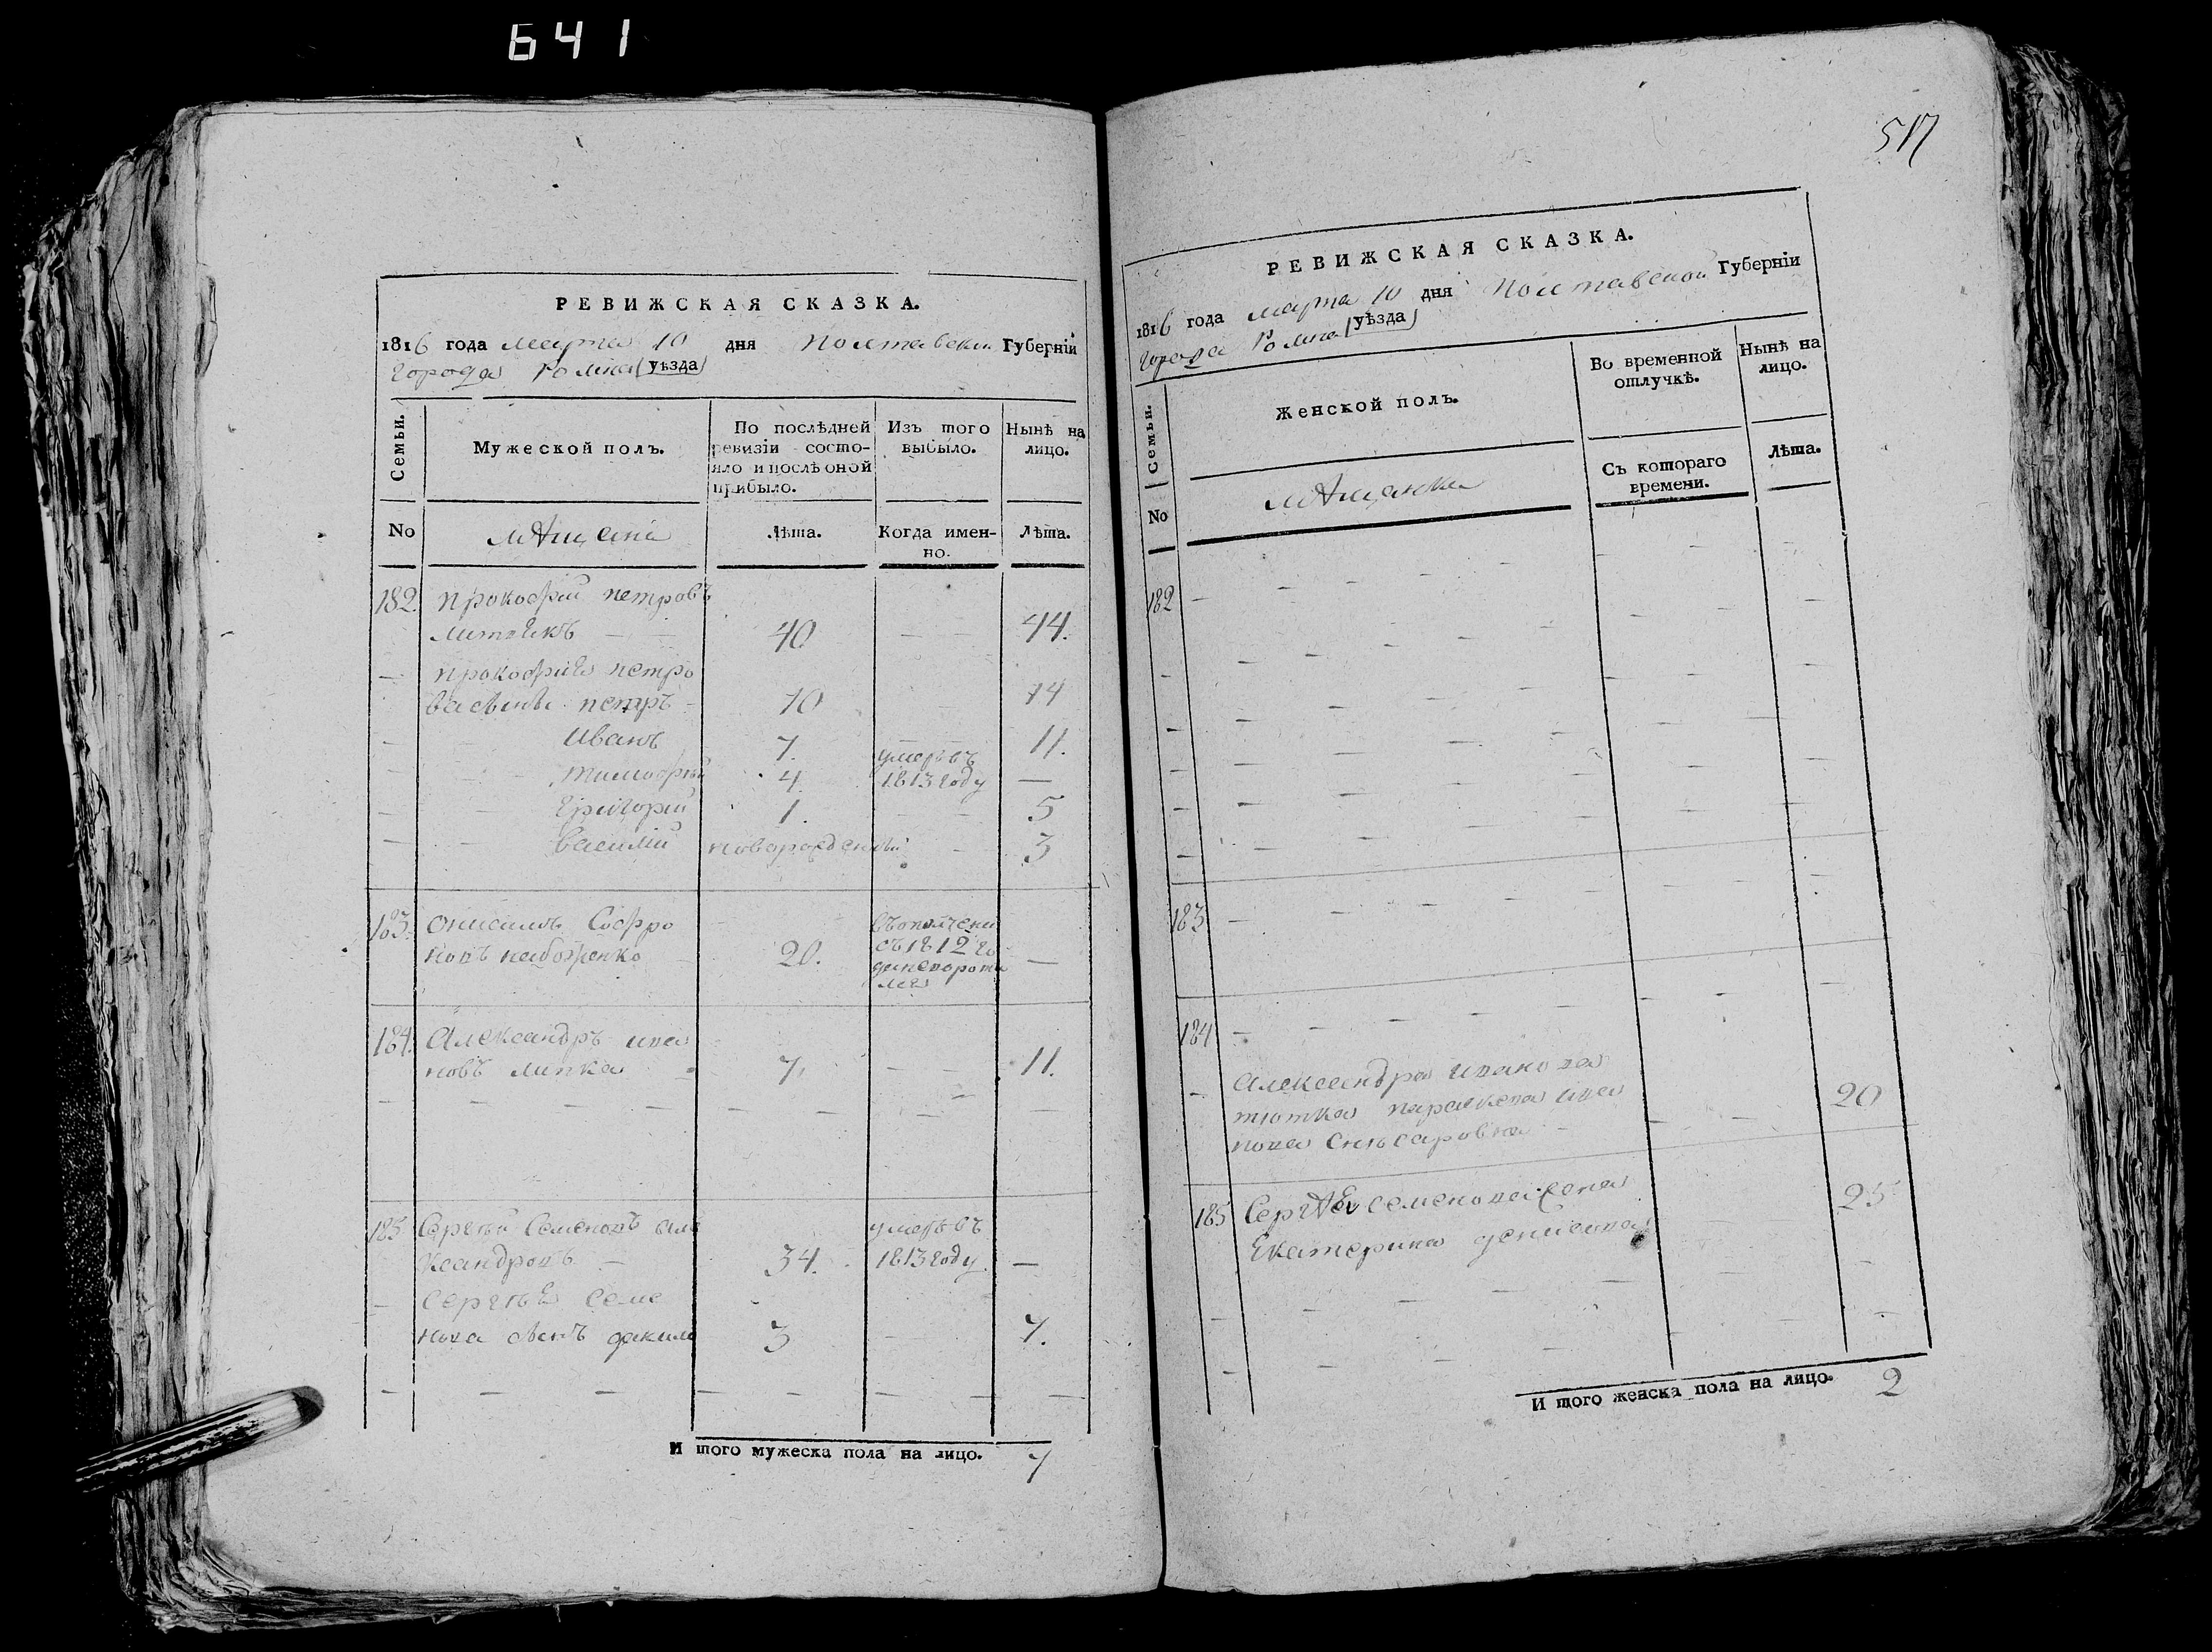 641
РЕВИЖСКАЯ СКАЗКА.
1816 года марта 10 дня Полтавской Губерніи
города Ромна (уѣзда)
Семьи.
Мужеской полъ.
По послѣдней ревизіи состояло и послѣ оной прибыло.
Изъ того выбыло.
Нынѣ на лицо.
No
мѣщане
Лѣта.
Когда именно.
Лѣта.
182. прокофій петровъ
40 44.
прокофия петро
ва сыны петръ 10 14
Иванъ 7. 11.
умеръ въ
тимофѣй 4 1813 году —
Григорий 1. 5
василий новорожденный 3
183. Софро
новъ 20. —
съ 1812 го
184. Александръ ива
новъ липка 7. 11.
185 Сергѣй Семеновъ але умеръ въ
ксандровъ 34. 1813 году —
Сергѣя Семе
нова сынъ 3 7.
И того мужеска пола на лицо. 7
517
РЕВИЖСКАЯ СКАЗКА.
1816 года марта 10 дня Полтавской Губерніи
города Ромна (уѣзда)
Семьи.
Женской полъ.
Во временной отлучкѣ.
Нынѣ на лицо.
Съ котораго времени.
Лѣта.
No
мѣщанки
182
183
184
Александра иванова
тютка параскева ива 20
нова
185 Сергѣя семенова жена 25
Екатерина денисова
И того женска пола на лицо. 2